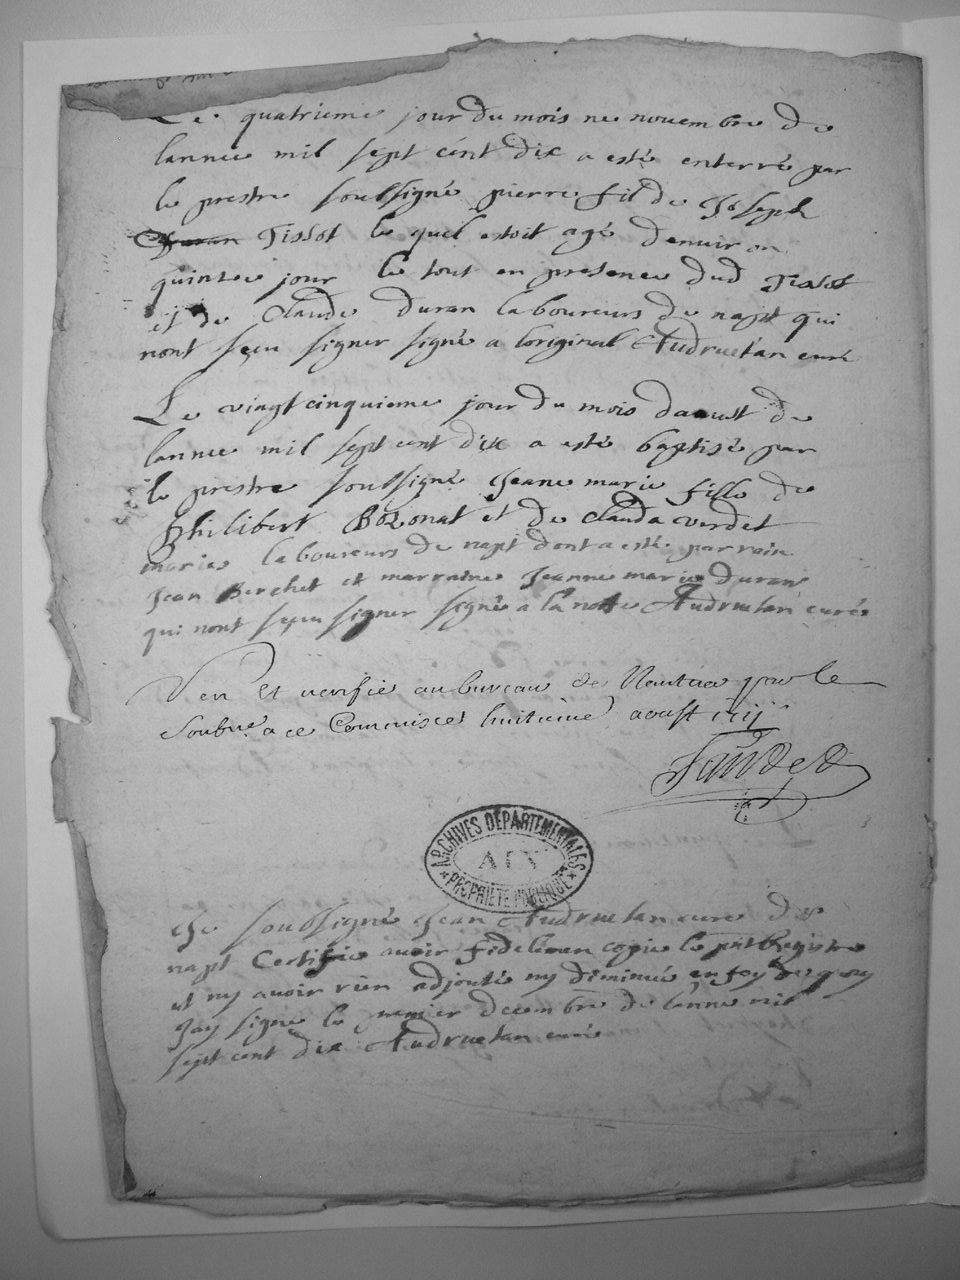 Le quatrieme jour du mois ne novembre de
lannee mil sept cent dix a esté enterré par
le prestre soubsigné pierre fil de Joseph
Duran Tissot le quel estoit agé denviron
quinze jour le tout en presence dud Tissot
et de Claude duran laboureurs de napt qui
nont sçeu signer signé a loriginal Audruetan curé
Le vingt cinquieme jour du mois daoust de
lannee mil sept cent dix a esté baptisé par
le prestre soubsigné Jeane marie fille de
philibert Bozonat et de Clauda verdet
mariés laboureurs de napt dont a esté parrain
Jean Berchet et marraine Jeanne marie duran
qui nont sçeu signer signé a la notte Audruetan curé
Veu et verifié au bureau de Nantua par le
Soubné a ce Commis ce huitieme aoust
ARCHIVES DÉPARTEMENTALES
AIN
PROPRIÉTÉ PUBLIQUE
Je soubsigné Jean Audruetan curé de
napt Certifie avoir fidelleman copié le pnt Registre
et ny avoir rien adjouté ny diminué en foy de quoy
Jay signé le premier decembre de lanne mil
sept cent dix Audruetan curé